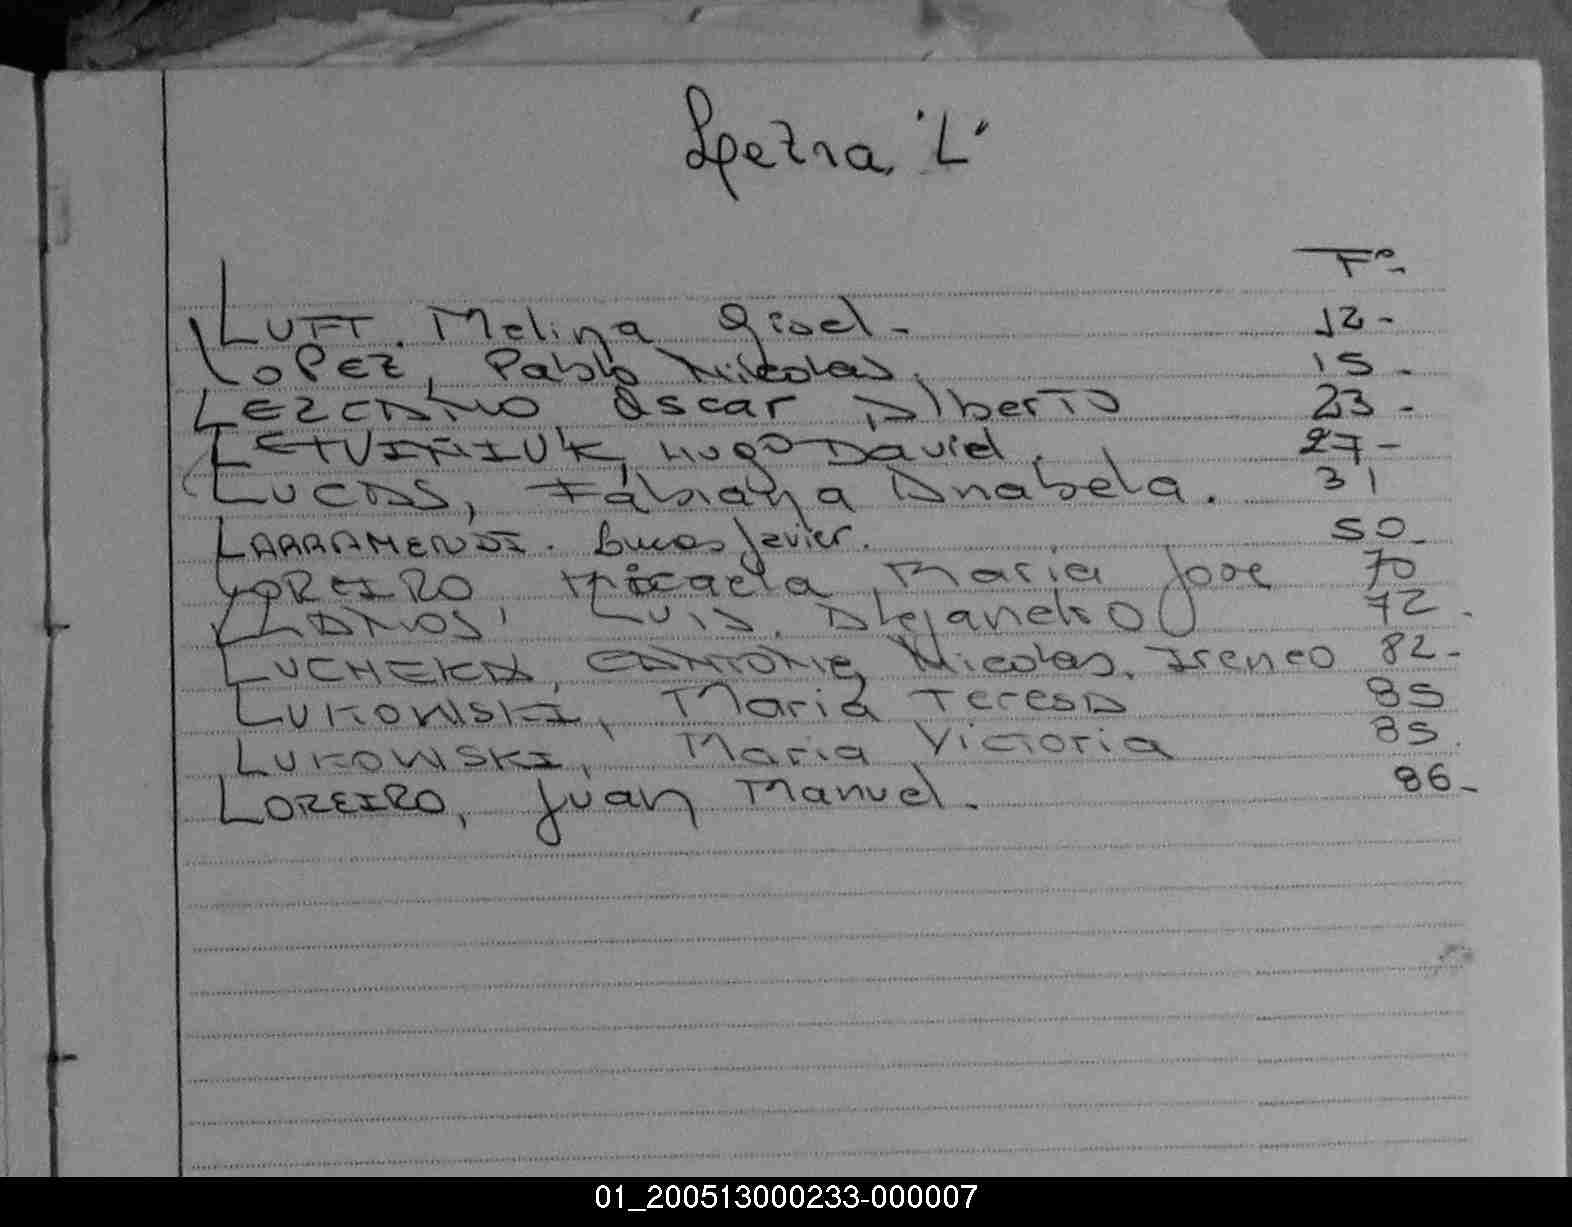 Letra "L"
Fº-
LUFT. Melina Gisel- 12-
LOPEZ, Pablo Nikolas. 15.
LEZCANO Oscar Alberto 23-
LETVIÑIUK, Hugo David. 27-
LUCAS, Fabiana Anabela. 31
LARRAMENDI. Lucas Javier. 50-
LOREIRO Micaela, Maria Jose 70
LLAMOS, Luis. Alejandro 72.
LUCHEKA, Nicolas. Ireneo 82-
LUKOWSKI, Maria Teresa 85
LUKOWSKI, Maria Victoria 85.
LOREIRO, Juan Manuel. 86-
01_200513000233-000007